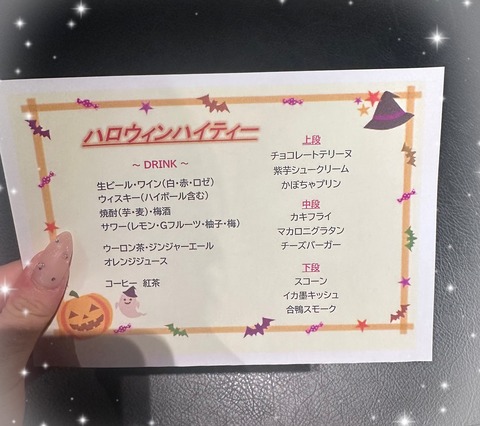 ハロウィンハイティー
～ DRINK ～
生ビール・ワイン(白・赤・ロゼ)
ウィスキー(ハイボール含む)
焼酎(芋・麦)・梅酒
サワー(レモン・Gフルーツ・柚子・梅)
ウーロン茶・ジンジャーエール
オレンジジュース
コーヒー 紅茶
上段
チョコレートテリーヌ
紫芋シュークリーム
かぼちゃプリン
中段
カキフライ
マカロニグラタン
チーズバーガー
下段
スコーン
イカ墨キッシュ
合鴨スモーク